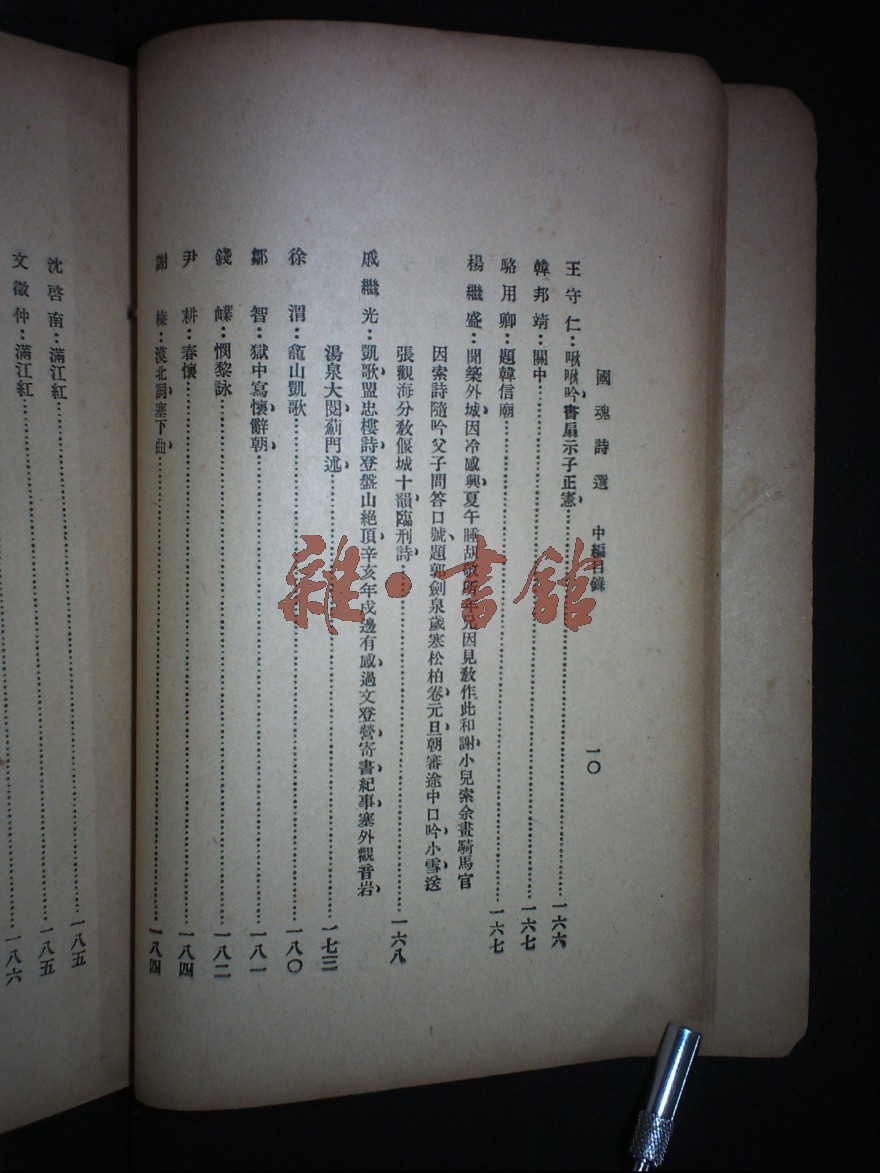 國魂詩選 中編目錄 一〇
王守仁：啾啾吟、書扇示子正憲、……一六六
韓邦靖：關中……一六七
駱用卿：題韓信廟……一六七
楊繼盛：聞築外城因冷感興、夏午睡胡敬所年兄因見教作此和謝、小兒索余畫騎馬官
因索詩隨吟父子問答口號、題郭劍泉歲寒松柏卷、元旦朝審途中口吟、小雪送
張觀海分教偃城十韻、臨刑詩、……一六八
戚繼光：凱歌、盟忠樓詩、登盤山絕頂、辛亥年戍邊有感、過文登營、寄書紀事、塞外觀音岩、
湯泉大閱、薊門述、……一七三
徐渭：龕山凱歌……一八〇
鄒智：獄中寫懷、辭朝、……一八一
錢㠂：憫黎詠……一八二
尹耕：春懷……一八四
謝榛：漠北詞、塞下曲、……一八四
……一八五
沈啓南：滿江紅……一八五
文徵仲：滿江紅……一八六
雜·書館